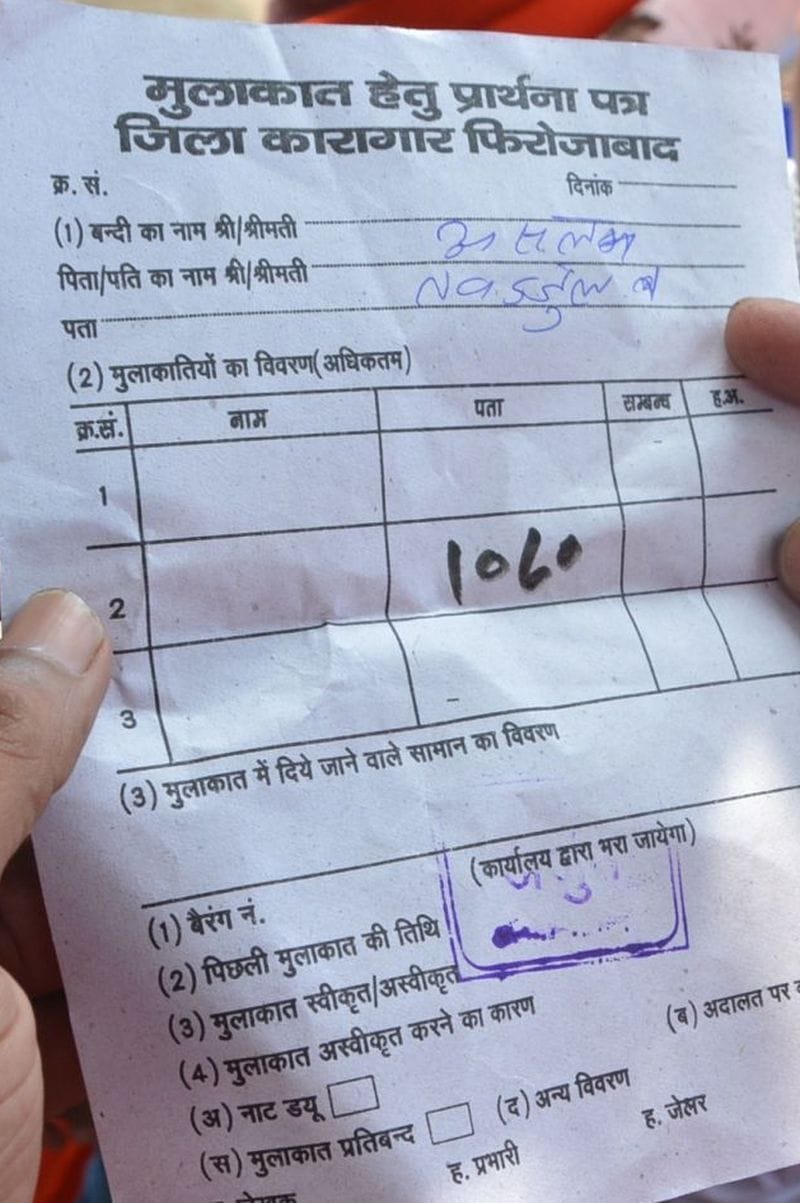 मुलाकात हेतु प्रार्थना पत्र
जिला कारागार फिरोजाबाद
क्र. सं. दिनांक
(1) बन्दी का नाम श्री/श्रीमती असलम
पिता/पति का नाम श्री/श्रीमती
पता
(2) मुलाकातियों का विवरण(अधिकतम)
क्र.सं. नाम पता सम्बन्ध ह.अ.
1
2 1060
3
(3) मुलाकात में दिये जाने वाले सामान का विवरण
(कार्यालय द्वारा भरा जायेगा)
(1) बैरंग नं.
(2) पिछली मुलाकात की तिथि
(3) मुलाकात स्वीकृत/अस्वीकृत
(4) मुलाकात अस्वीकृत करने का कारण
(अ) नाट डयू (ब) अदालत पर
(स) मुलाकात प्रतिबन्द (द) अन्य विवरण
ह. प्रभारी ह. जेलर